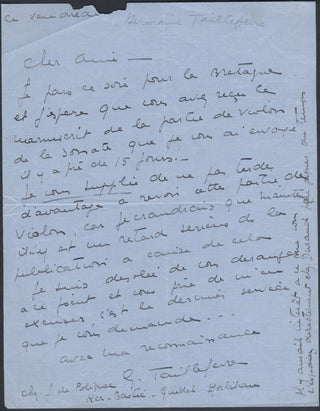 ce vendredi
Germaine Tailleferre
Cher Ami —
Je pars ce soir pour la Bretagne
et j'espère que vous avez reçu le
manuscrit de la partie de violon
de la Sonate que je vous ai envoyé
il y a près de 15 jours. —
Je vous supplie de ne pas tarder
d'avantage à revoir cette partie de
violon, car je craindrais que
il n'y eut un retard sérieux de la
publication à cause de cela
Je suis désolée de vous déranger
à ce point et vous prie de m'en
excuser c'est le dernier service
que je vous demande . . .
avec ma reconnaissance
G. Tailleferre
chez J. de Polignac
Ker-Bastic Guidel Morbihan